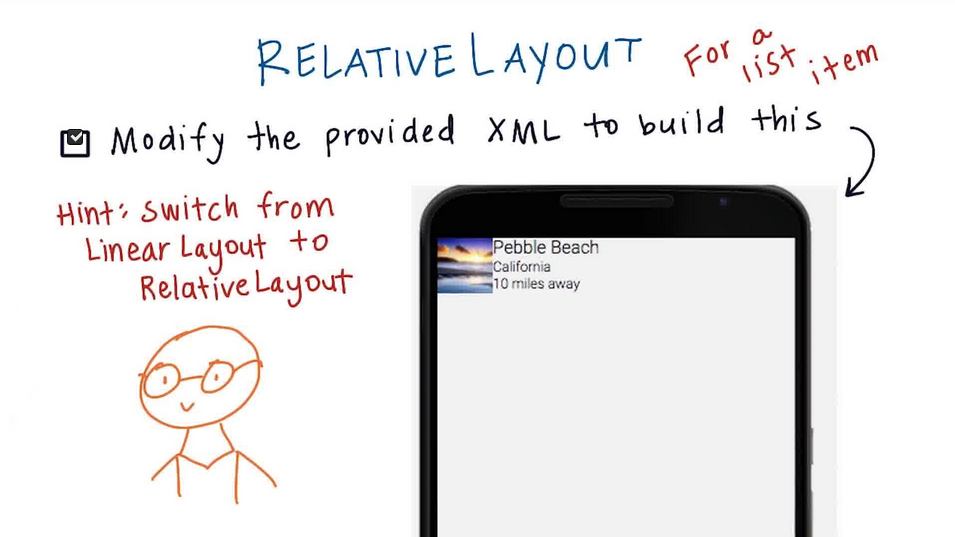 RELATIVELAYOUT For a list item
Modify the provided XML to build this
Hint: Switch from
Linear Layout to
RelativeLayout
Pebble Beach
California
10 miles away